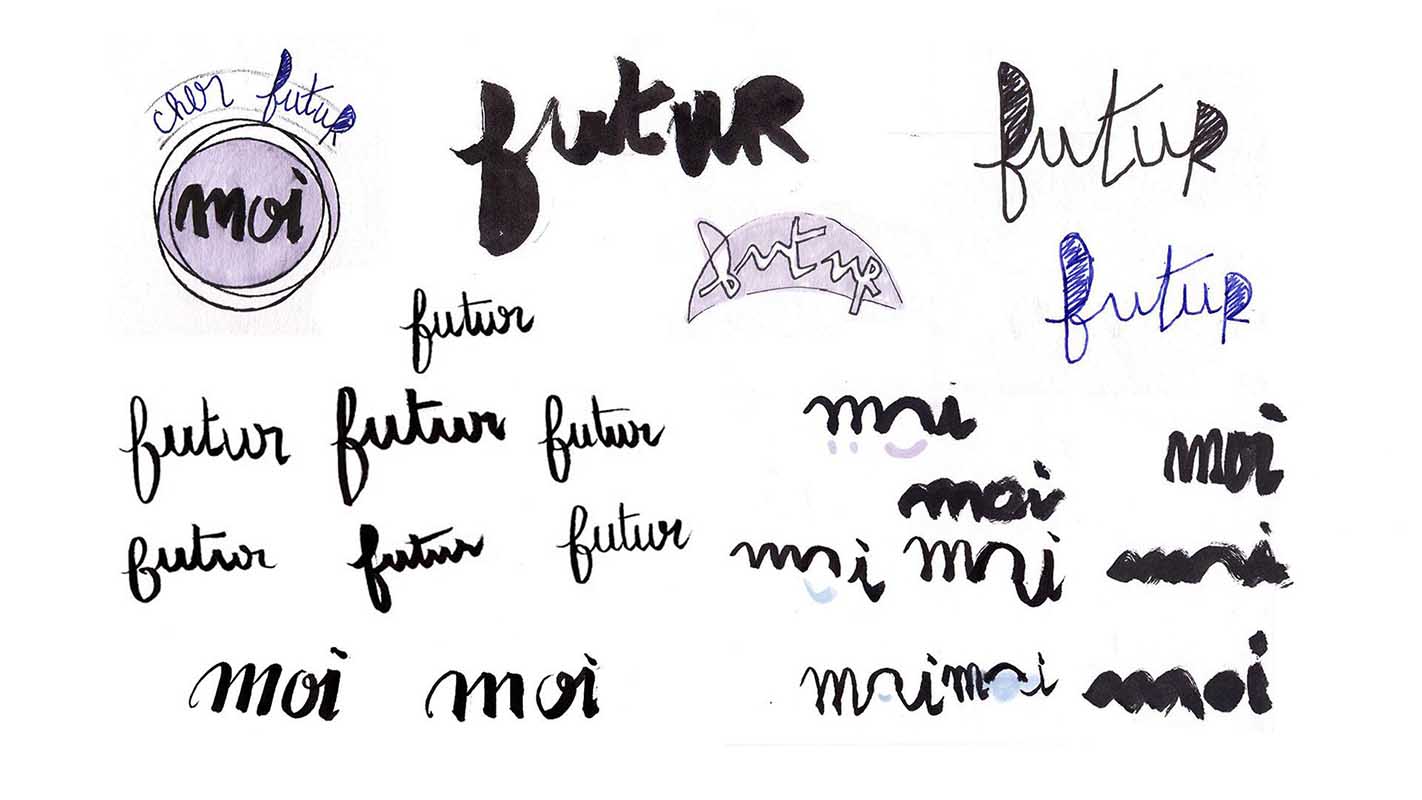 cher futur
moi
futur
futur
futur
futur
futur
futur
futur
futur
futur
futur
futur
moi
moi
moi
moi
moi
moi
moi
moi
moi moi
moi
moi